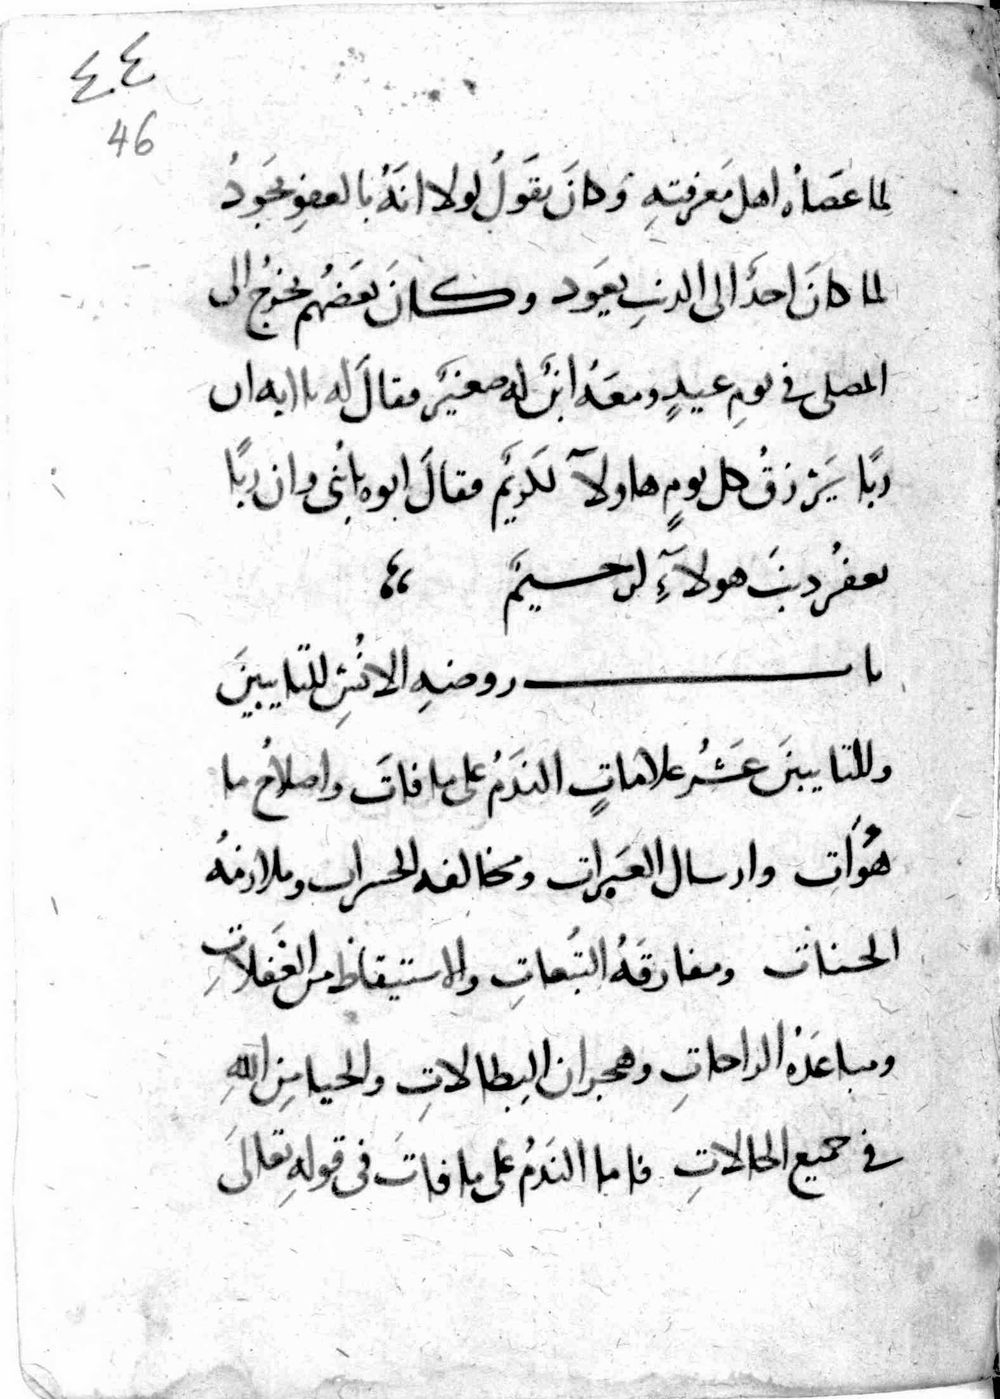 ٤٤
46
لما عَصَاه اهل مَعرفتهِ وَكانَ يقَولُ لولا انهُ بالعفوِ يجَودُ
لما كانَ احدٌ الى الذنبِ يعَود وكانَ بعَضهُم يخرجُ الى
المصلى في يومِ عيدٍ ومعَهُ ابنٌ له صغيرٌ فقالَ له يا ابه ان
ربًا يَرْزقُ كل يومٍ هاولآ لكريمٌ فقالَ ابوه يابُنى وان ربًا
يغفرُ ذنبَ هولآءِ لرحيمٌ
باب روضةِ الانُسِ للتايبينَ
وللتايبينَ عَشرُ علاماتٍ الندَمُ على ما فاتَ واصلاحُ ما
هوَ ات وارسال العَبرات ومخالفه وملازمةُ
الحسنات ومفارقَةُ التَبُعاتِ والاستيقاظ من الغَفلاتِ
ومباعَدَةُ الراحاتِ وهجران البِطالاتِ والحيا مِنَ اللّهِ
في جميع الحالاتِ فاما الندَمُ على ما فاتَ فى قولهِ تعَالىَ